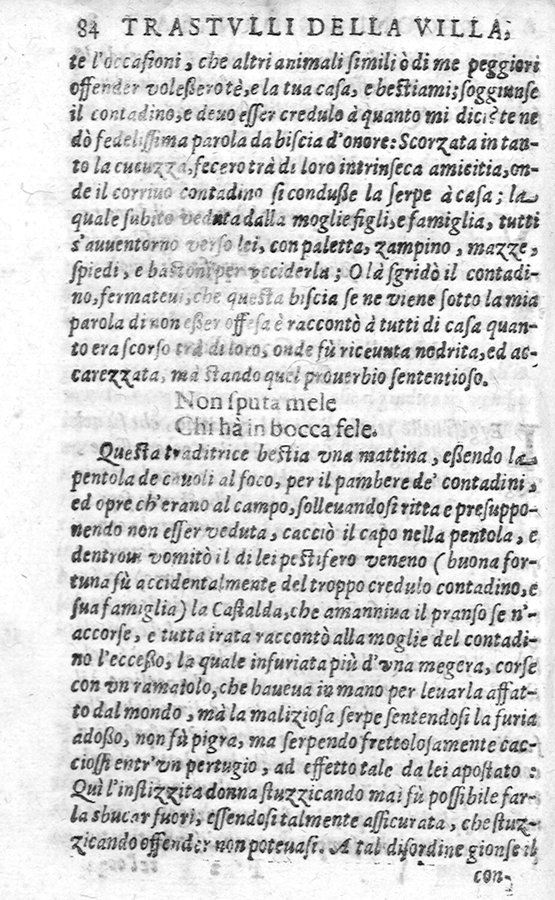 84 TRASTVLLI DELLA VILLA,
te l'occasioni, che altri animali simili ò di me peggiori
offender voleßero tè, e la tua casa, e bestiami; soggiunse
il contadino, e devo esser credulo à quanto mi dici? te ne
dò fedelissima parola da biscia d'onore: Scorzata in tan-
to la cucuzza, fecero trà di loro intrinseca amicitia, on-
de il corrivo contadino si conduße la serpe à casa; la
quale subito veduta dalla moglie figli, e famiglia, tutti
s'auuentorno verso lei, con paletta, zampino, mazze,
spiedi, e bastoni per vcciderla; O là sgridò il contadi-
no, fermateui, che questa biscia se ne viene sotto la mia
parola di non eßer offesa è raccontò à tutti di casa quan-
to era scorso trà di loro, onde fù riceuuta nodrita, ed ac-
carezzata, mà stando quel prouerbio sententioso.
Non sputa mele
Chi hà in bocca fele.
Questa traditrice bestia vna mattina, eßendo la
pentola de cauoli al foco, per il pambere de' contadini,
ed opre ch'erano al campo, solleuandosi ritta e presuppo-
nendo non esser veduta, cacciò il capo nella pentola, e
dentroui vomitò il di lei pestifero veneno (buona for-
tuna fù accidentalmente del troppo credulo contadino, e
sua famiglia) la Castalda, che amanniua il pranso se n'-
accorse, e tutta irata raccontò alla moglie del contadi-
no l'ecceßo, la quale infuriata più d'vna megera, corse
con vn ramaiolo, che haueua in mano per leuarla affat-
to dal mondo, mà la maliziosa serpe sentendosi la furia
adoßo, non fù pigra, ma serpendo frettolosamente cac-
ciossi entr'vn pertugio, ad effetto tale da lei apostato:
Quì l'instizzita donna stuzzicando mai fù possibile far-
la sbucar fuori, essendosi talmente assicurata, che stuz-
zicando offender non poteuasi. A tal disordine gionse il
con-